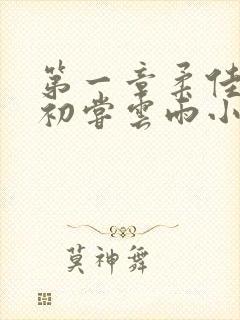 第一章柔佳
初尝雲雨小
莫神舞